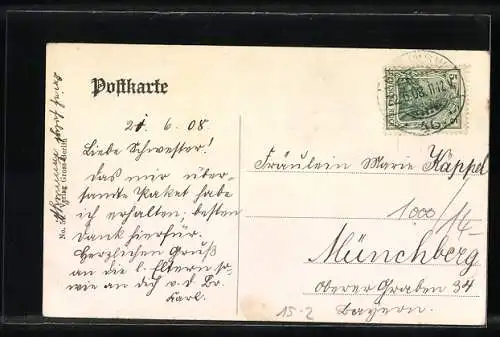 Postkarte
21. 6. 08.
Liebe Schwester!
Das mir über-
sandte Paket habe
ich erhalten; besten
Dank hierfür.
Herzlichen Gruß
an die l. Eltern so-
wie an dich v. d. Br.
Karl.
Fräulein Marie Kappel
1000/14
Münchberg
Oberer Graben 34
Bayern.
15-2